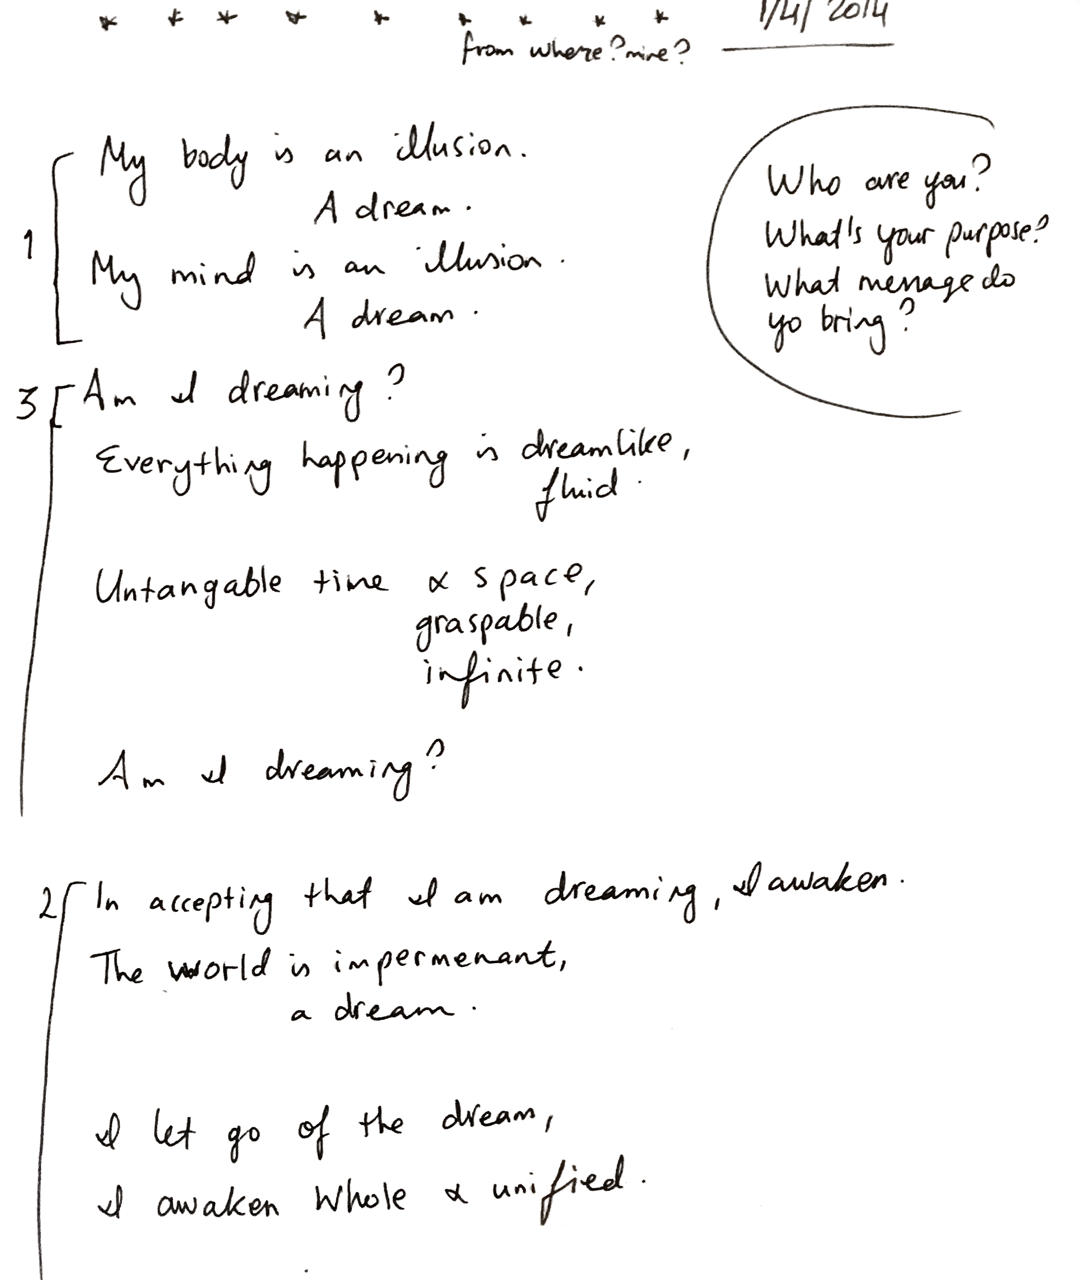 * * * * * * * * *
1/4/ 2014
from where? mine?
1
My body is an illusion.
A dream.
My mind is an illusion.
A dream.
Who are you?
What's your purpose?
What message do
yo bring?
3
Am I dreaming?
Everything happening is dreamlike,
fluid.
Untangable time & space,
graspable,
infinite.
Am I dreaming?
2
In accepting that I am dreaming, I awaken.
The world is impermenant,
a dream.
I let go of the dream,
I awaken Whole & unified.